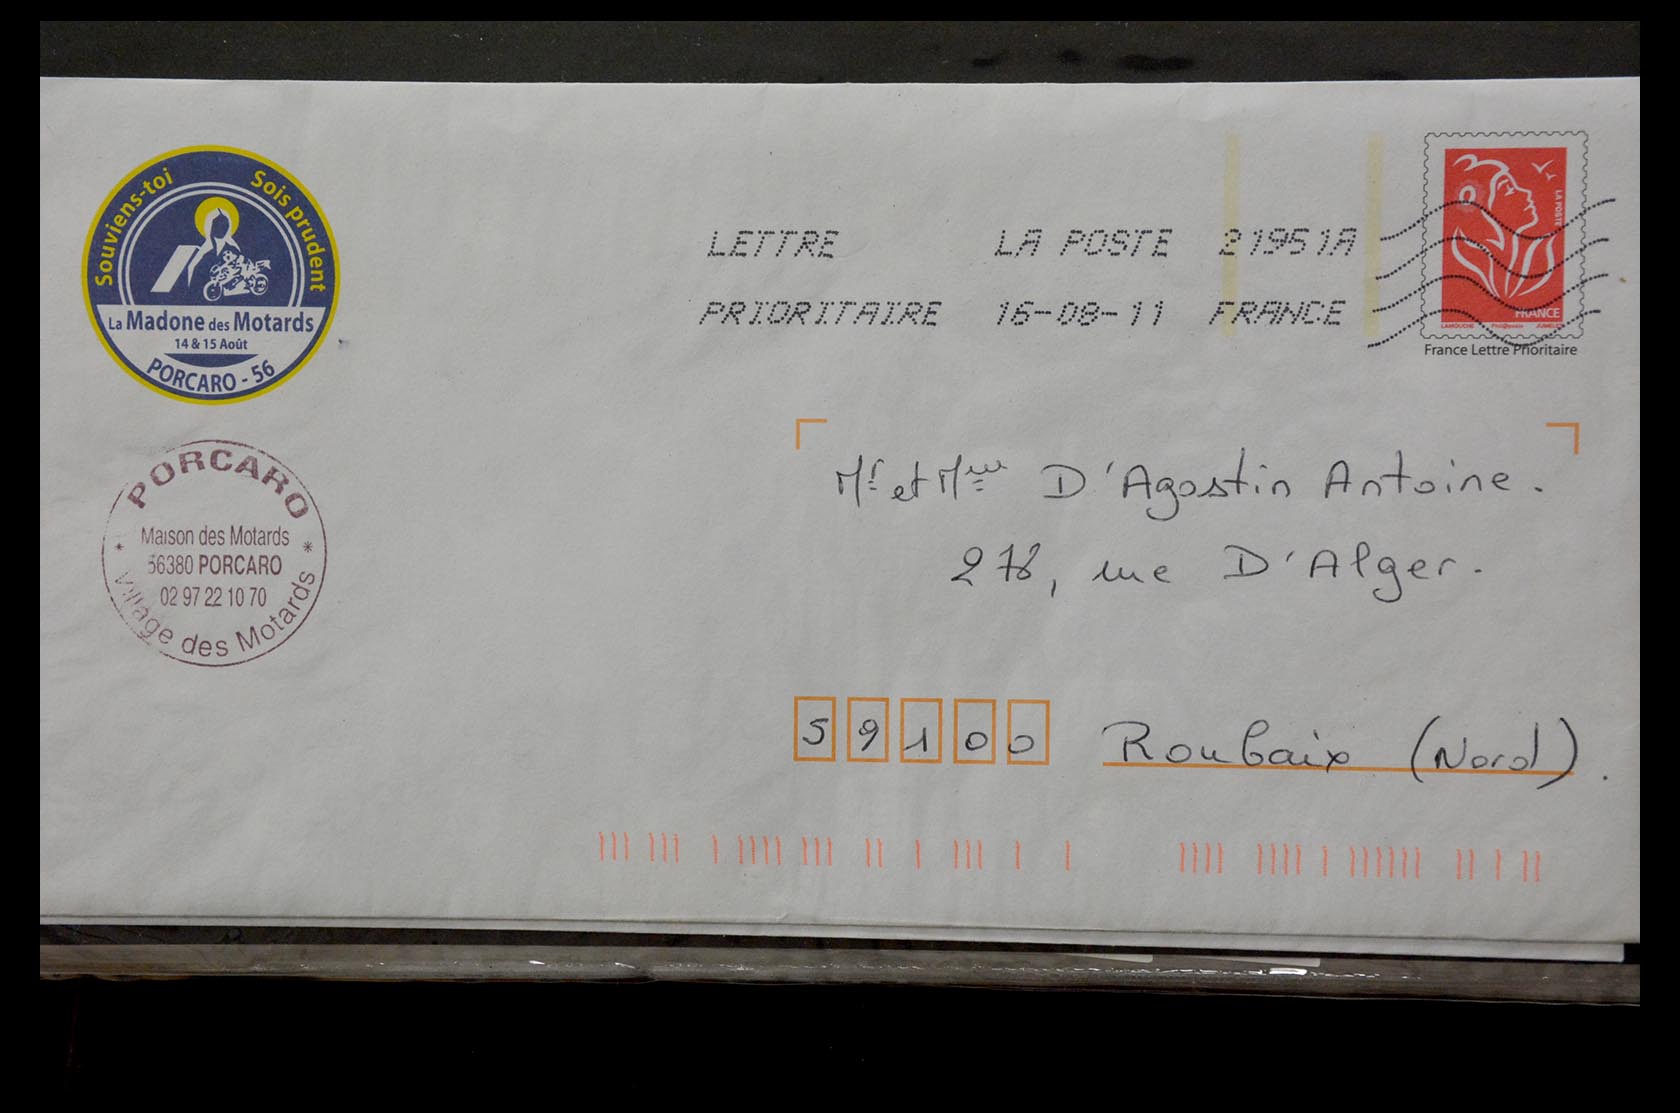 Souviens-toi Sois prudent
La Madone des Motards
14 & 15 Août
PORCARO - 56
PORCARO
Maison des Motards
56380 PORCARO
02 97 22 10 70
* Village des Motards *
LETTRE LA POSTE 21951A
PRIORITAIRE 16-08-11 FRANCE
LA POSTE
FRANCE
LAMOUCHE Phil@poste JUMELET
France Lettre Prioritaire
Mr et Mme D'Agostin Antoine.
278, rue D'Alger.
59100 Roubaix (Nord).